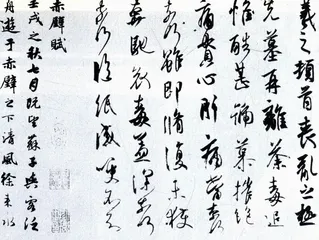 羲之頓首喪亂之極
先墓再離荼毒追
惟酷甚號慕摧絕
痛貫心肝痛當奈何
奈何雖即脩復未獲
奔馳哀毒益深奈何
奈何臨紙感哽不知
赤壁賦
壬戌之秋七月既望蘇子與客泛
舟遊于赤壁之下清風徐來水